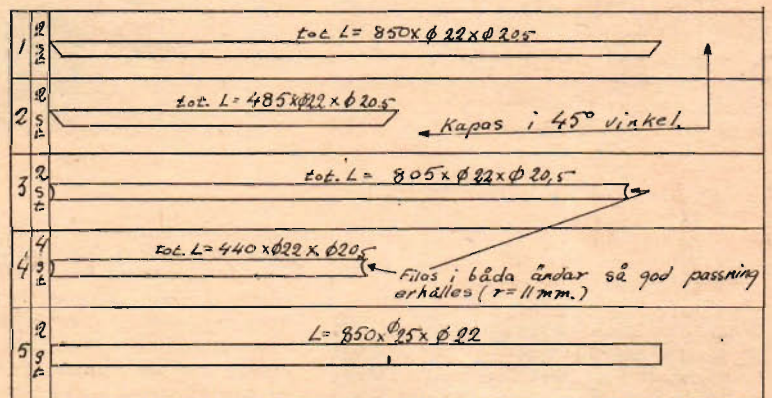 1 2 st tot. L = 850 x ϕ 22 x ϕ 20,5
2 2 st tot. L = 485 x ϕ22 x ϕ 20.5
Kapas i 45° vinkel.
3 2 st tot. L = 805 x ϕ 22 x ϕ 20,5
4 4 st tot. L = 440 x ϕ22 x ϕ20,5
Filas i båda ändar så god passning
erhålles (r = 11 mm.)
5 2 st L = 850 x ϕ25 x ϕ 22